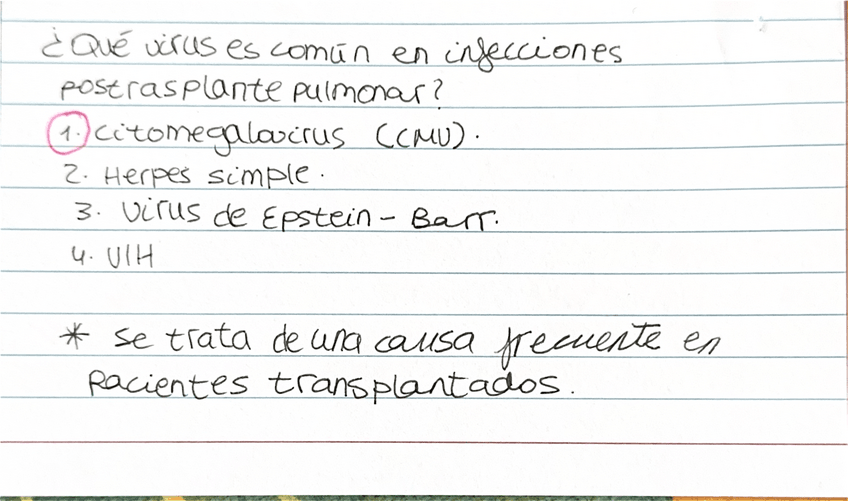 ¿Qué virus es común en infecciones
postrasplante pulmonar?
1. Citomegalovirus (CMV).
2. Herpes simple.
3. Virus de Epstein - Barr.
4. VIH
* Se trata de una causa frecuente en
pacientes transplantados.